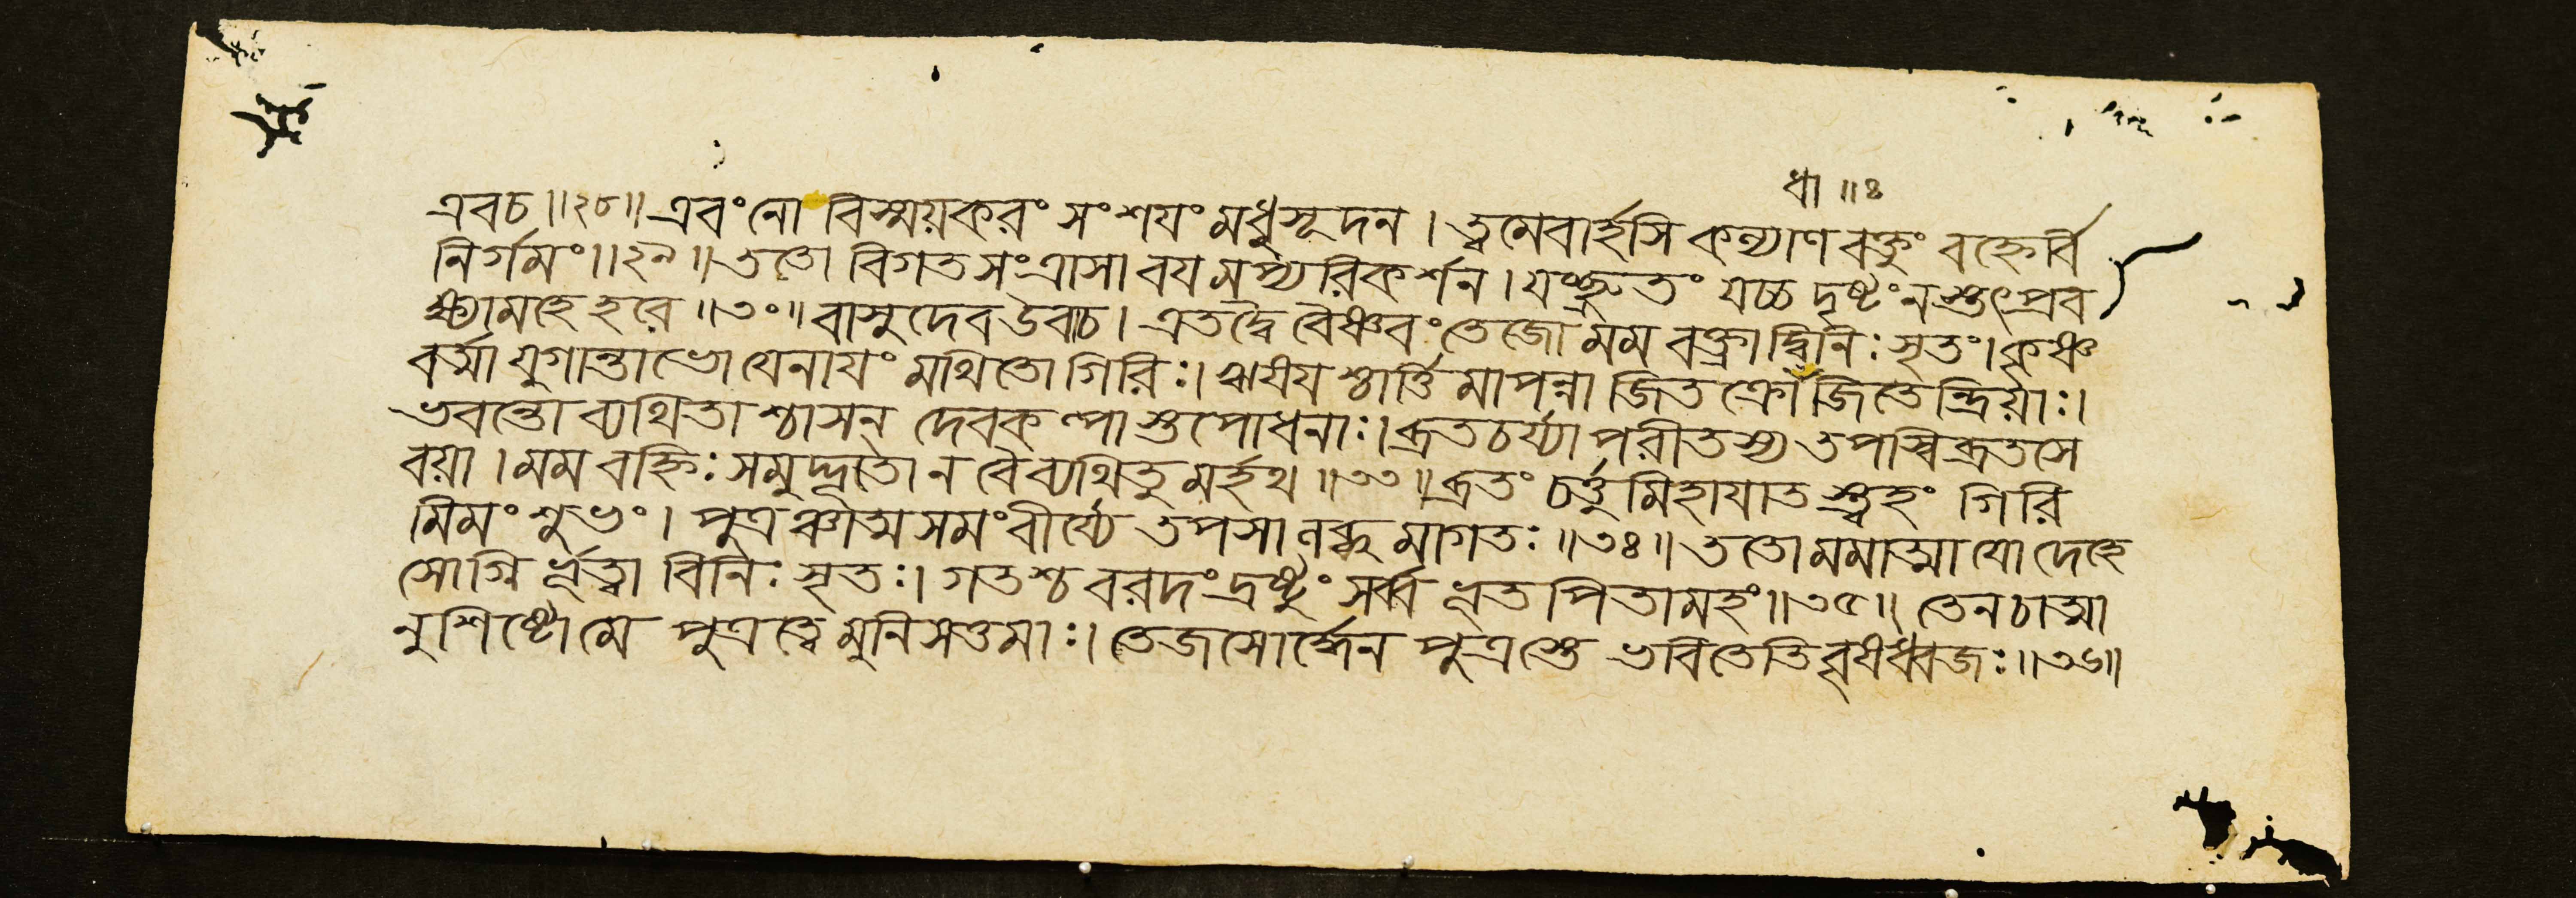 ধা ॥৪
এবচ॥২৮॥এবংনো বিস্ময়করং সংশযং মধুসূদন। ত্বমেবার্হসি কল্যাণ বক্তুং বহ্নের্ব
নির্গমং॥২৯॥ততো বিগতসংত্রাসা বযমপ্যরিকর্শন। যংশ্রুতং যচ্চ দৃষ্টংনস্তৎপ্রব
ক্ষ্যামহে হরে॥৩০॥বাসুদেবউবাচ। এতদ্বৈ বৈষ্ণবংতেজো মমবক্ত্রাদ্বিনিঃসৃতং।কৃষ্ণ
বর্ত্মা যুগান্তাভো যেনাযং মথিতোগিরিঃ। ঋষযশ্চার্ত্তিমাপন্না জিতক্রো জিতেন্দ্রিয়াঃ।
ভবন্তো ব্যথিতাশ্চাসন্ দেবকল্পাস্তপোধনাঃ।ব্রতচর্য্যাপরীতস্য তপস্বিব্রতসে
বয়া। মম বহ্নিঃ সমুদ্ভূতো ন বৈব্যথিতুমর্হথ॥৩৩॥ব্রতং চর্ত্তুমিহাযাতস্ত্বহং গিরি
মিমং শুভং। পুত্রঞ্চাত্মসমংবীর্য্যে তপসালব্ধুমাগতঃ॥৩৪॥ ততোমমাত্মাযোদেহে
সোগ্নির্ভূত্বা বিনিঃসৃতঃ। গতশ্চ বরদংদ্রষ্টুং সর্ব্বভূতপিতামহং॥৩৫॥ তেনচাত্মা
নুশিষ্টোমে পুত্রত্বে মুনিসত্তমাঃ। তেজসোর্দ্ধেন পুত্রস্তে ভবিতেতিবৃষধ্বজঃ॥৩৬॥